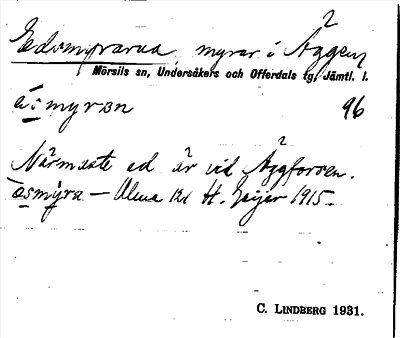 Edsmyrarna, myrar i Äggen
Mörsils sn, Undersåkers och Offerdals tg, Jämtl. l.
āsmyrɜn 96
Närmaste ed är vid Äggforsen.
āsmȳra – Ulma 121 H. Geijer 1915.
C. LINDBERG 1931.